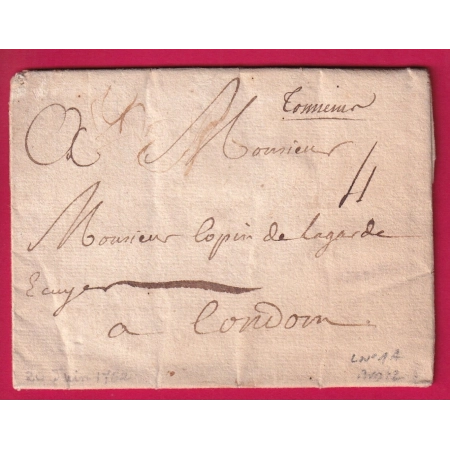 Tonneins
A Monsieur
4
Monsieur Copin de lagarde
Ecuyer
a Condom
Juin 1762
L N° 1A